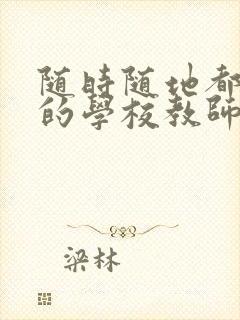 随時随地都
的學校教師
梁林